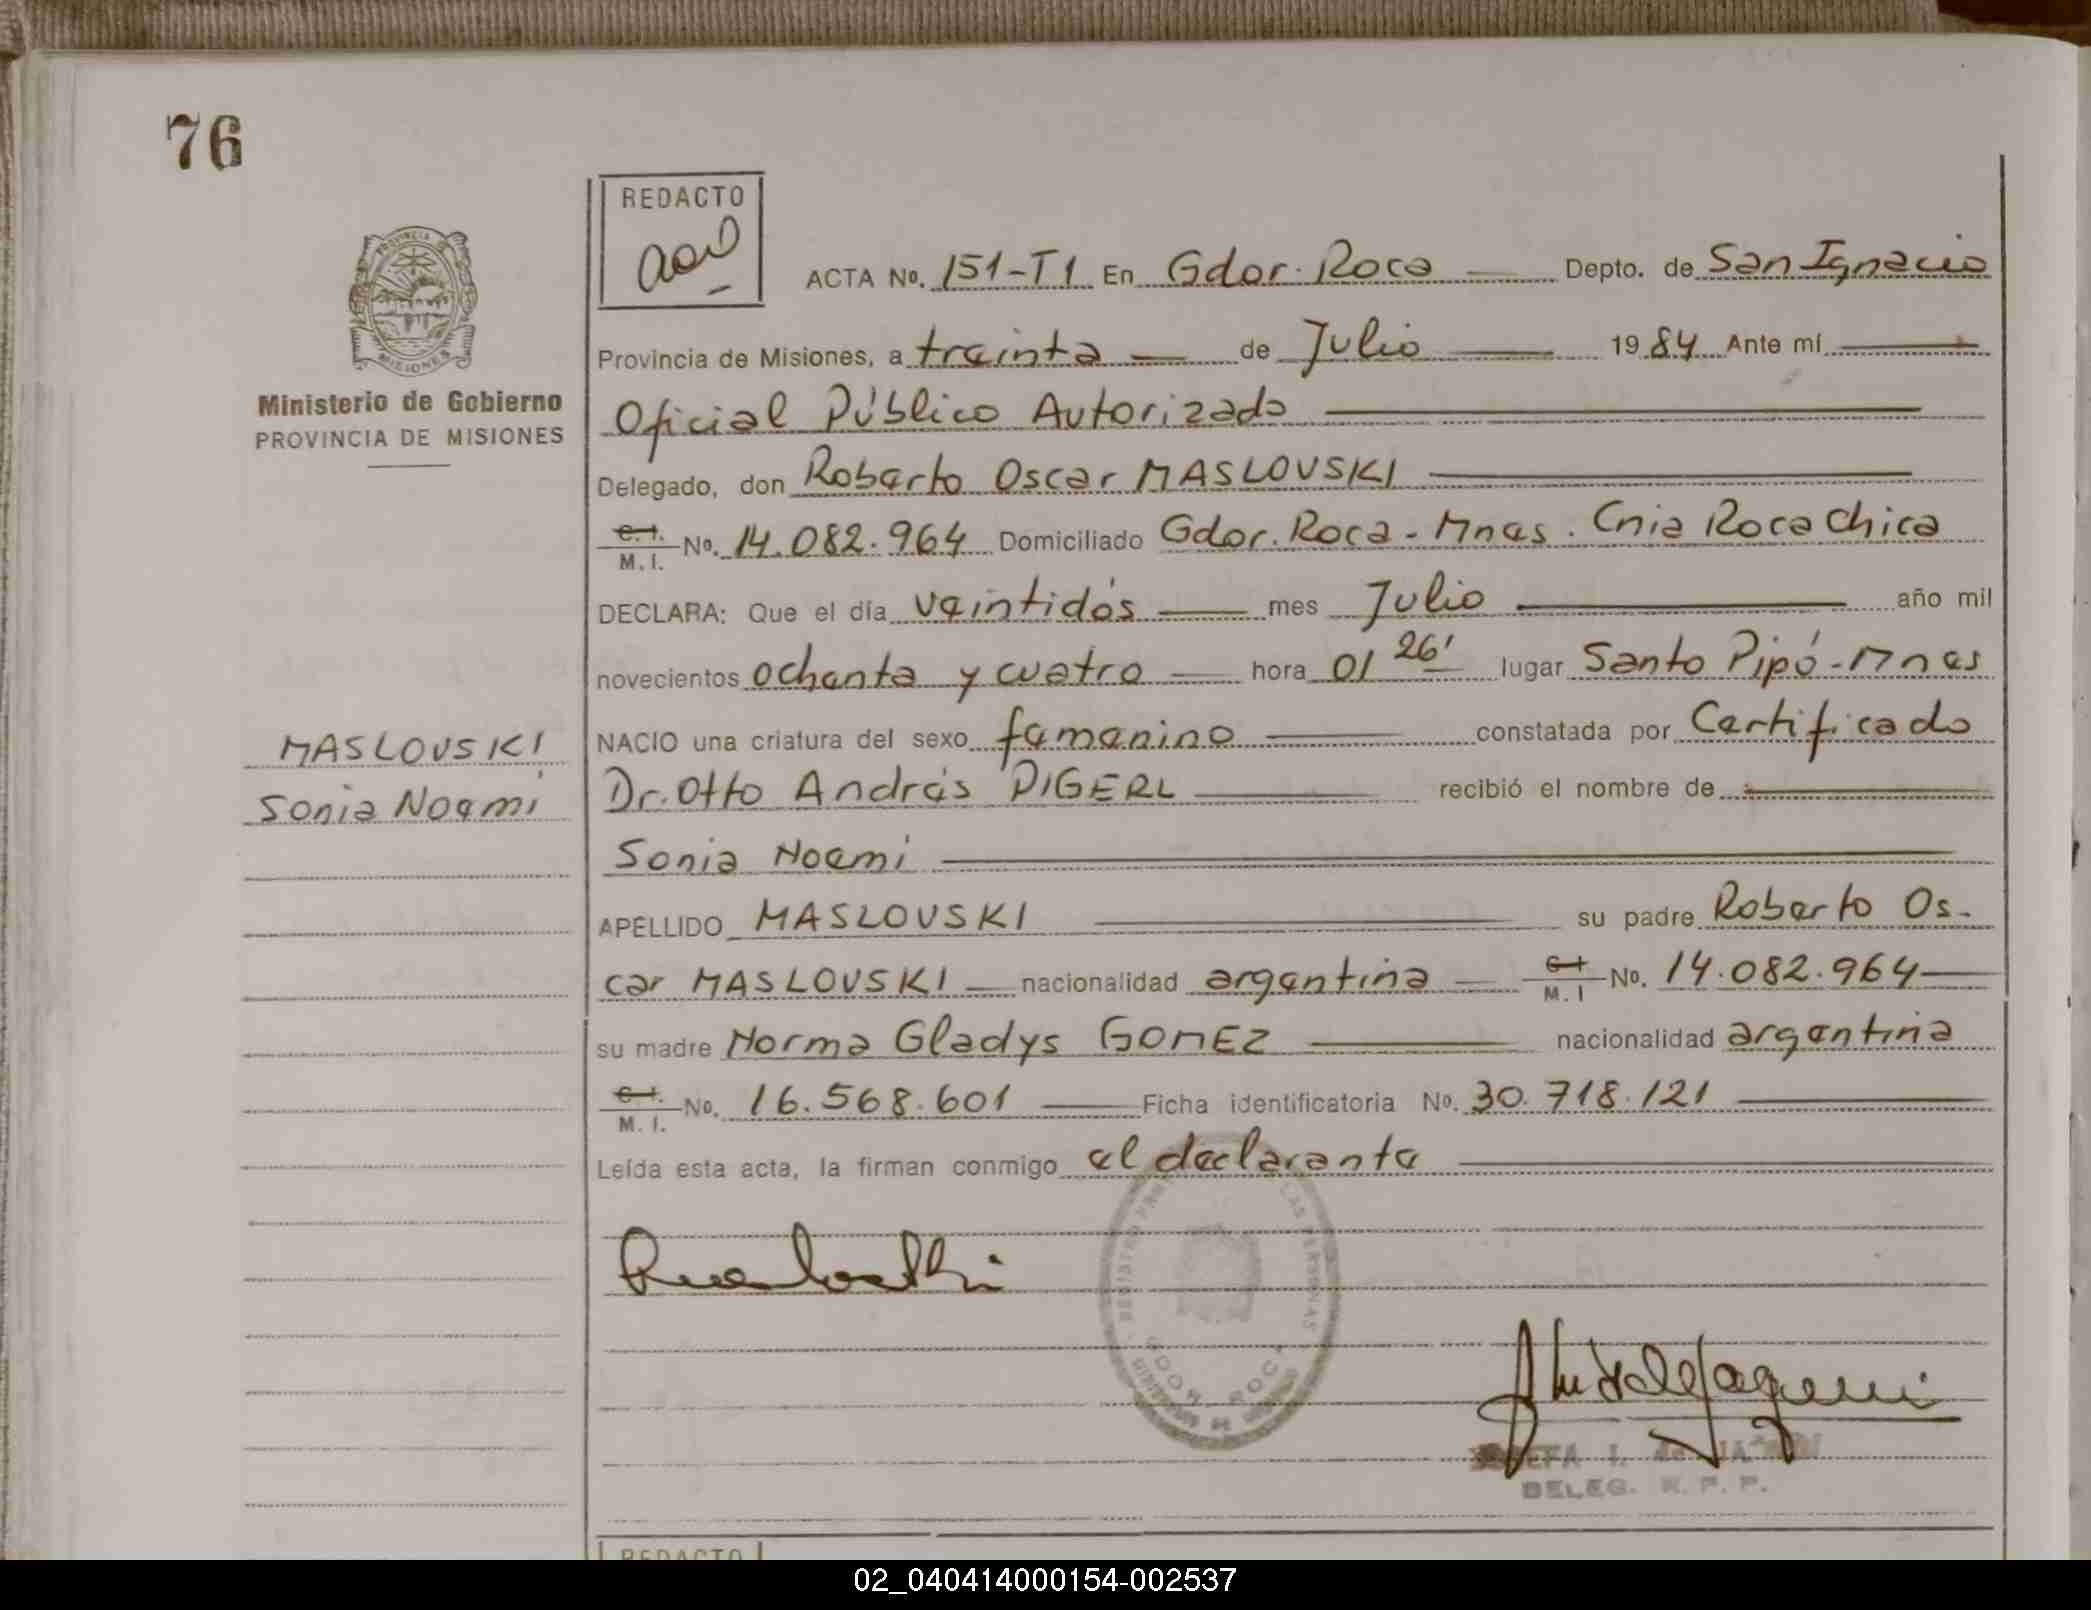 76
REDACTO
ACTA No. 151-T1 En Gdor. Roca Depto. de San Ignacio
Provincia de Misiones, a treinta de Julio 1984 Ante mí
Ministerio de Gobierno
PROVINCIA DE MISIONES
Oficial Público Autorizado
Delegado, don Roberto Oscar MASLOVSKI
C.I. M.I. No. 14.082.964 Domiciliado Gdor. Roca - Mnes. Cnia Roca Chica
DECLARA: Que el día veintidós mes Julio año mil
novecientos ochenta y cuatro hora 01 26' lugar Santo Pipó - Mnes
MASLOVSKI
Sonia Noemí
NACIO una criatura del sexo femenino constatada por Certificado
Dr. Otto Andrés PIGERL recibió el nombre de
Sonia Noemí
APELLIDO MASLOVSKI su padre Roberto Os-
car MASLOVSKI nacionalidad argentina C.I. M.I No. 14.082.964
su madre Norma Gladys GOMEZ nacionalidad argentina
C.I. M.I. No. 16.568.601 Ficha identificatoria No. 30.718.121
Leída esta acta, la firman conmigo el declarante
GDOR. ROCA
DELEG. R. P. P.
REDACTO
02_040414000154-002537